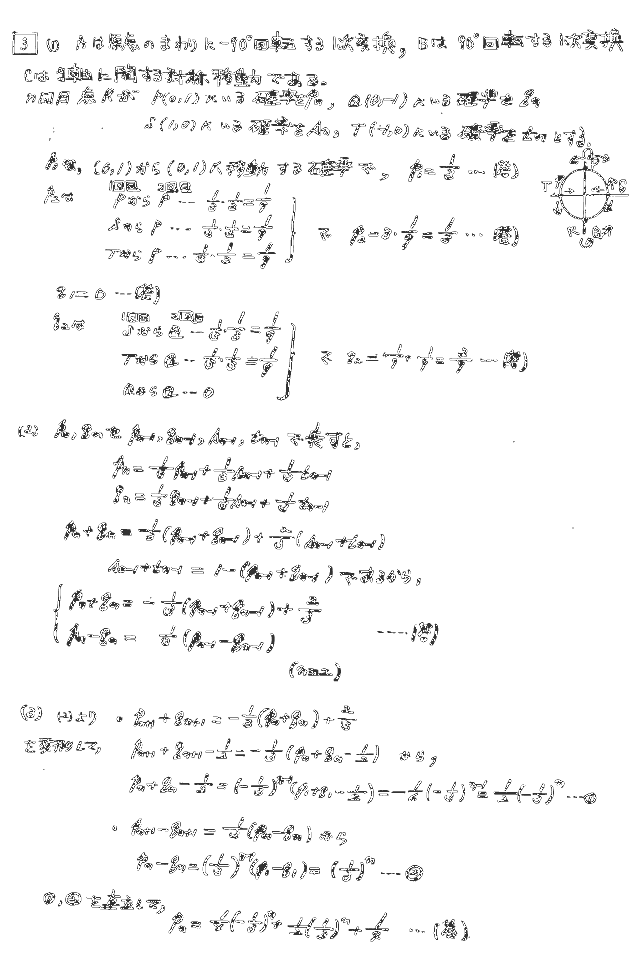 [3] (1) Aは原点のまわりに-90°回転する1次変換, Bは90°回転する1次変換
Cはy軸に関する対称移動である。
n回目 点Rが P(0,1)にいる確率をpn, Q(0,-1)にいる確率をqn
S(1,0)にいる確率をsn, T(-1,0)にいる確率をtnとする。
p1は, (0,1)から(0,1)に移動する確率で, p1=1/3 …(答)
p2は 1回目 2回目
PからP … 1/3・1/3=1/9
SからP … 1/3・1/3=1/9
TからP … 1/3・1/3=1/9
で p2=3・1/9=1/3 …(答)
q1=0 …(答)
q2は 1回目 2回目
SからQ … 1/3・1/3=1/9
TからQ … 1/3・1/3=1/9
QからQ … 0
で q2= 2/9 …(答)
(2) pn, qnを pn-1, qn-1, sn-1, tn-1 で表すと,
pn=1/3pn-1+1/3sn-1+1/3tn-1
qn=1/3qn-1+1/3sn-1+1/3tn-1
pn+qn=1/3(pn-1+qn-1)+2/3(sn-1+tn-1)
sn-1+tn-1=1-(pn-1+qn-1)であるから,
pn+qn=-1/3(pn-1+qn-1)+2/3
pn-qn=1/3(pn-1-qn-1) …(答)
(n≧2)
(3) (2)より ・pn+1+qn+1=-1/3(pn+qn)+2/3
を変形して, pn+1+qn+1-1/2=-1/3(pn+qn-1/2) から,
pn+qn-1/2=(-1/3)^n-1(p1+q1-1/2)=-1/6(-1/3)^n-1=1/2(-1/3)^n …①
・pn+1-qn+1=1/3(pn-qn)から
pn-qn=(1/3)^n-1(p1-q1)=(1/3)^n …②
①, ②を連立して,
pn=1/4(-1/3)^n+1/2(1/3)^n+1/4 …(答)